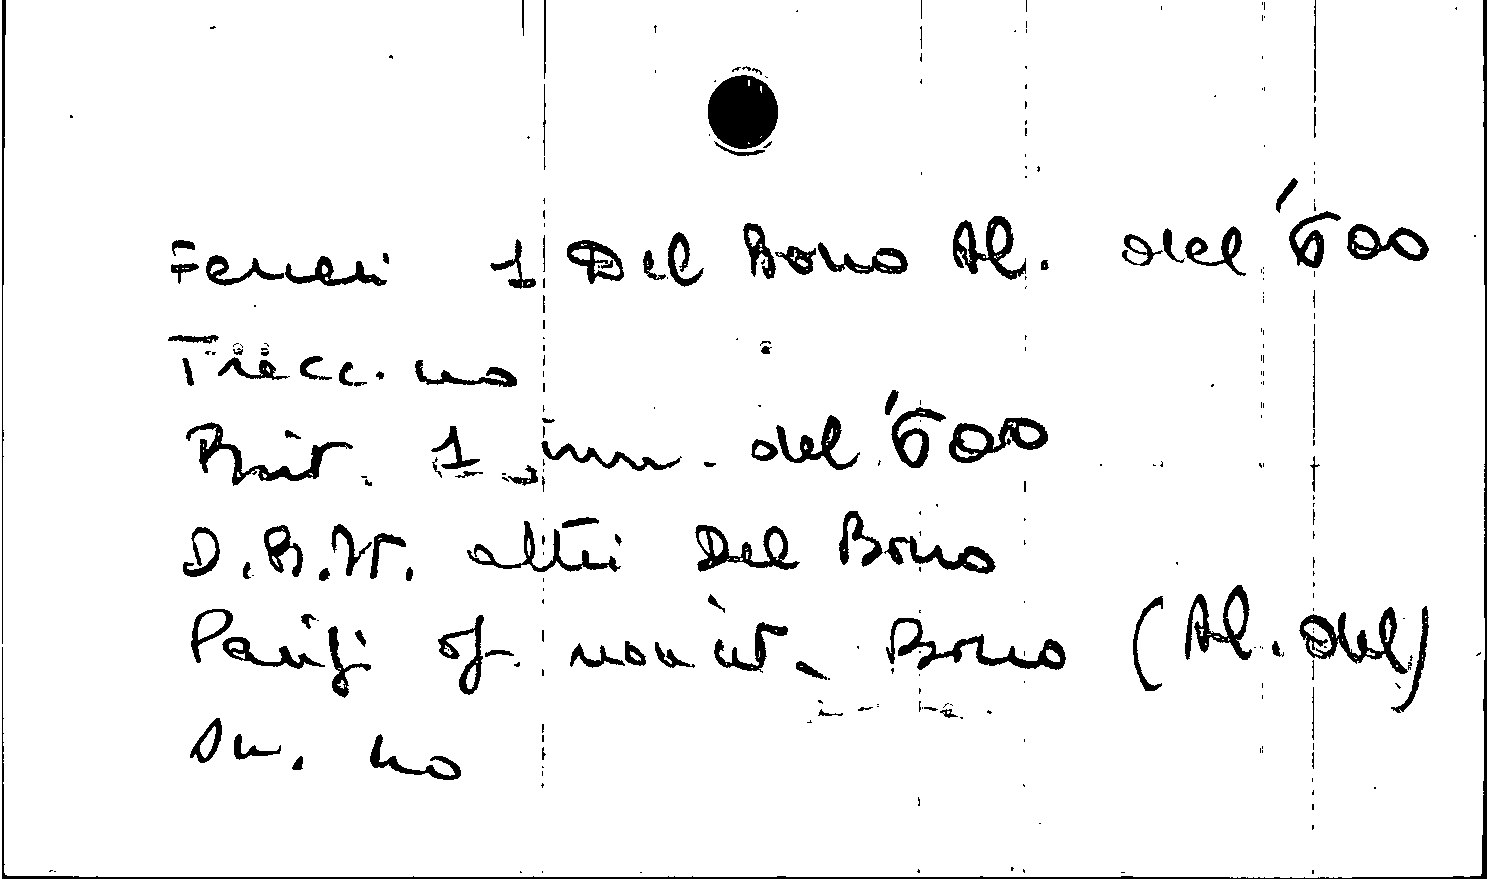 Ferreri 1 Del Bono Al. del '600
Trecc. no
Brit. 1 inn. del '600
D.B.It. altri Del Bono
Parigi of. non cit. Bono (Al. del)
An. no